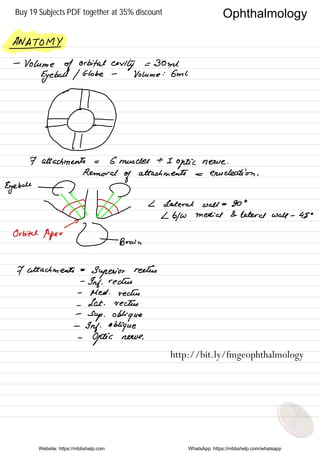 Buy 19 Subjects PDF together at 35% discount
Ophthalmology
ANATOMY
- Volume of orbital cavity = 30ml
Eyeball / Globe - Volume: 6ml
7 attachments = 6 muscles + 1 optic nerve.
Removal of attachments = enucleation.
Eyeball
∠ lateral wall = 90°
∠ b/w medial & lateral wall - 45°
Orbital Apex
Brain
7 attachments = Superior rectus
- Inf. rectus
- Med. rectus
- Lat. rectus
- Sup. oblique
- Inf. oblique
- Optic nerve.
http://bit.ly/fmgeophthalmology
Website: https://mbbshelp.com
WhatsApp: https://mbbshelp.com/whatsapp